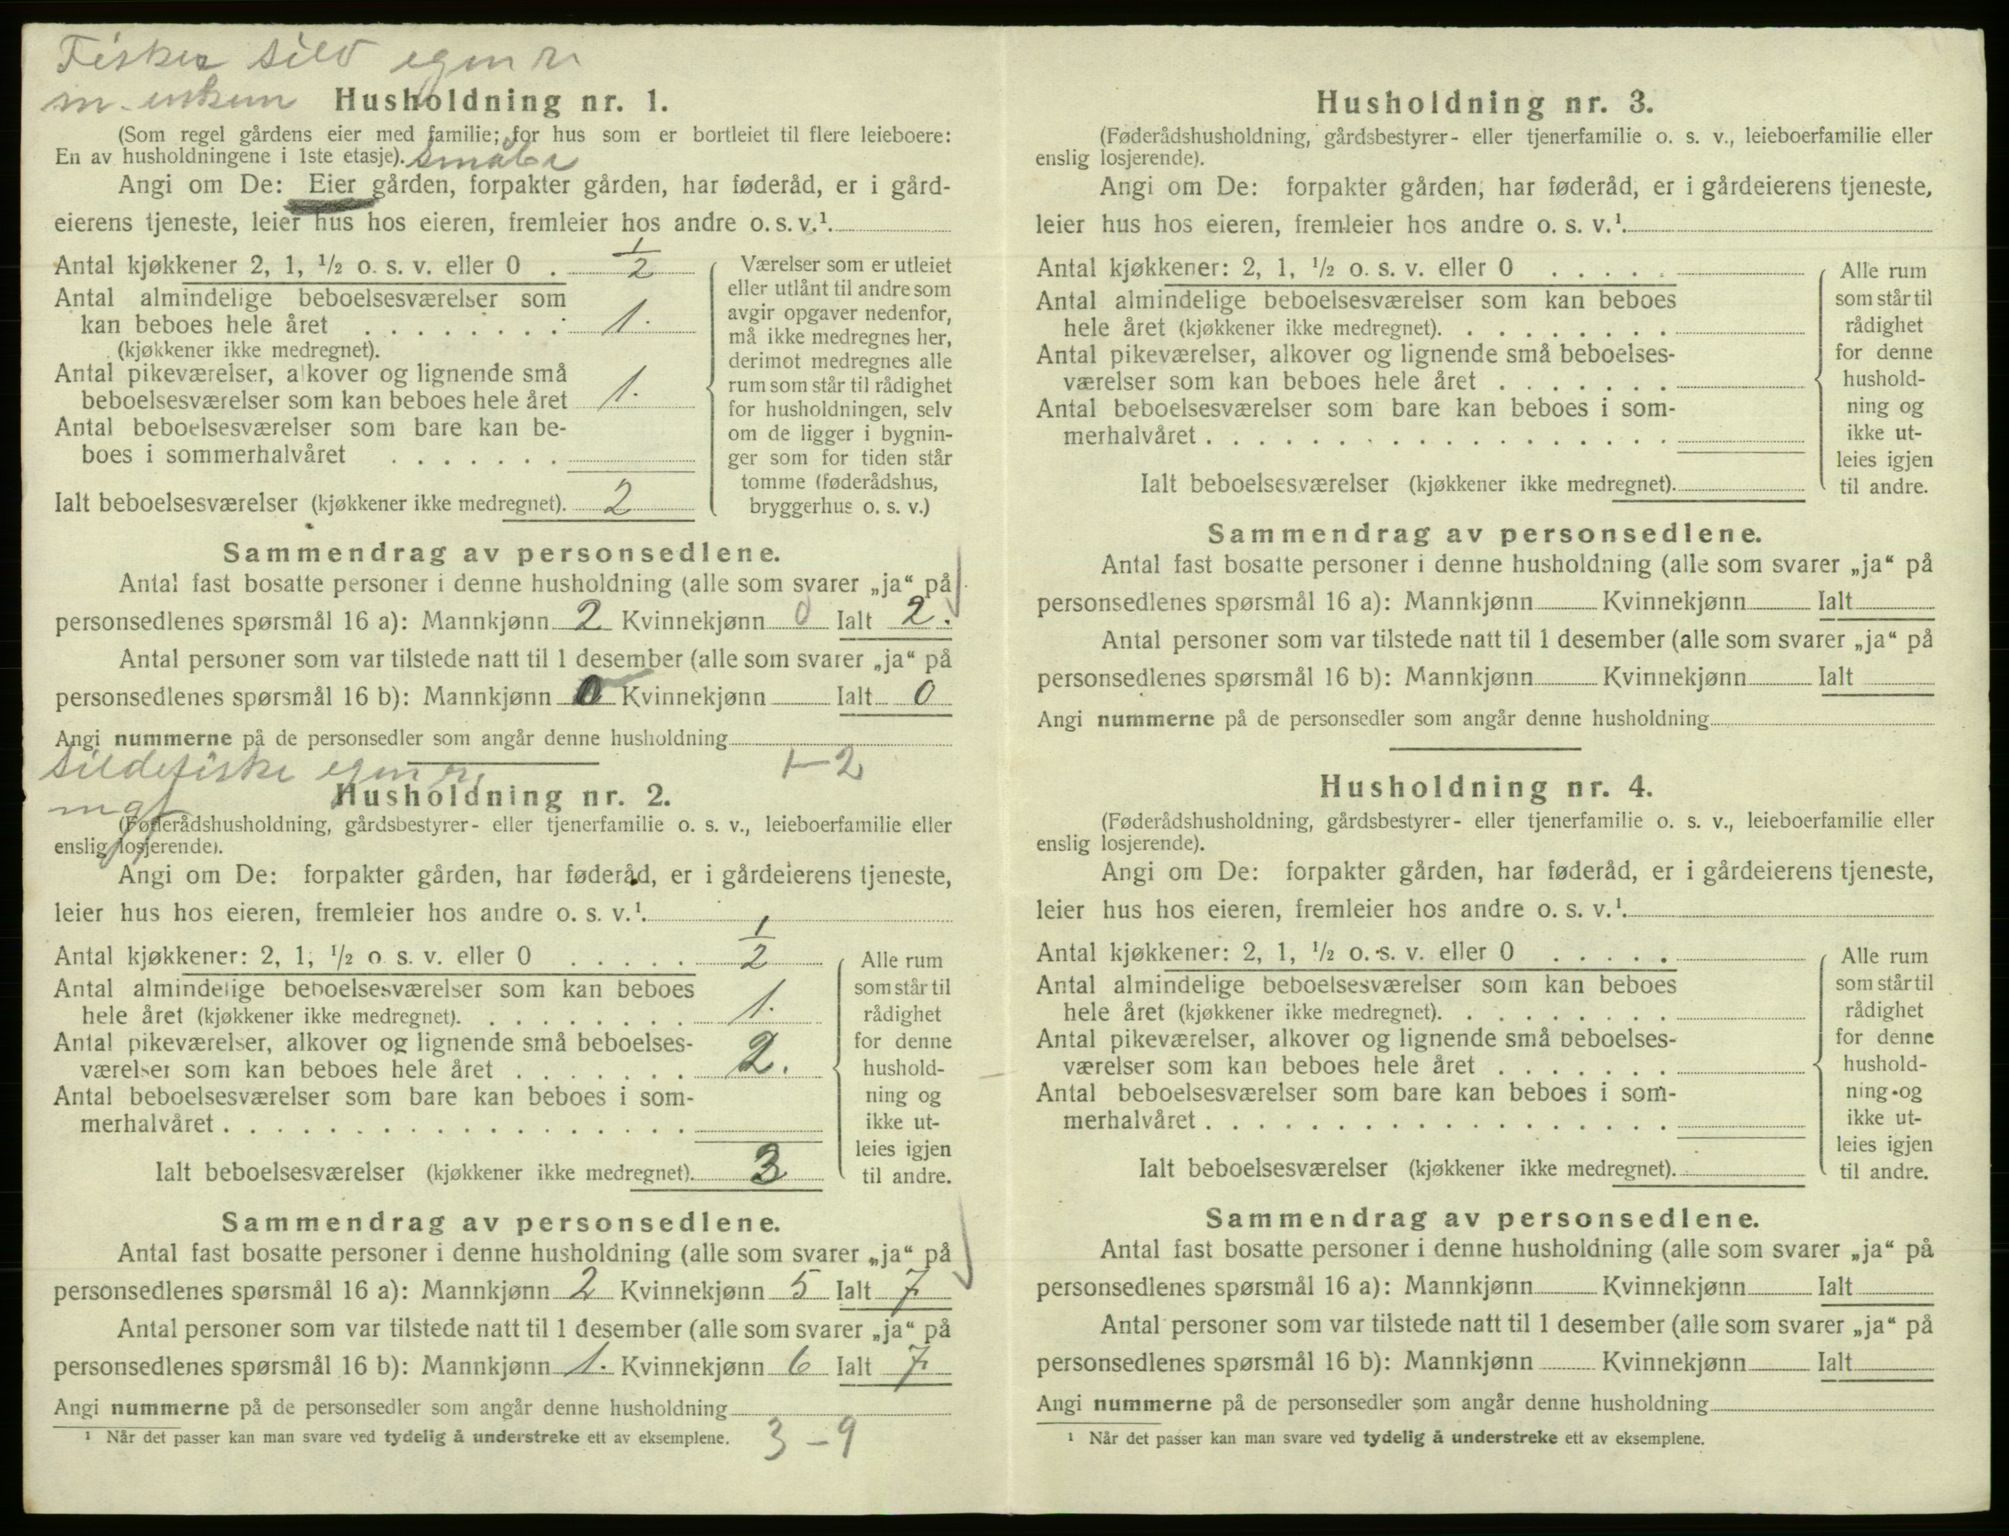 Fisker sild egen r.
m. enkem
Husholdning nr. 1.
(Som regel gårdens eier med familie; for hus som er bortleiet til flere leieboere:
En av husholdningene i 1ste etasje). småbr
Angi om De: Eier gården, forpakter gården, har føderåd, er i gård-
eierens tjeneste, leier hus hos eieren, fremleier hos andre o. s. v.¹
Antal kjøkkener 2, 1, ½ o. s. v. eller 0 . 1/2
Antal almindelige beboelsesværelser som
kan beboes hele året . . . . . . . . 1.
(kjøkkener ikke medregnet).
Antal pikeværelser, alkover og lignende små
beboelsesværelser som kan beboes hele året 1.
Antal beboelsesværelser som bare kan be-
boes i sommerhalvåret . . . . . . .
Ialt beboelsesværelser (kjøkkener ikke medregnet). 2
Værelser som er utleiet
eller utlånt til andre som
avgir opgaver nedenfor,
må ikke medregnes her,
derimot medregnes alle
rum som står til rådighet
for husholdningen, selv
om de ligger i bygnin-
ger som for tiden står
tomme (føderådshus,
bryggerhus o. s. v.)
Sammendrag av personsedlene.
Antal fast bosatte personer i denne husholdning (alle som svarer „ja“ på
personsedlenes spørsmål 16 a): Mannkjønn 2 Kvinnekjønn 0 Ialt 2.
Antal personer som var tilstede natt til 1 desember (alle som svarer „ja“ på
personsedlenes spørsmål 16 b): Mannkjønn 0 Kvinnekjønn Ialt 0
Angi nummerne på de personsedler som angår denne husholdning
1-2
Sildefiske egen r.
Husholdning nr. 2.
(Føderådshusholdning, gårdsbestyrer- eller tjenerfamilie o. s. v., leieboerfamilie eller
enslig losjerende).
Angi om De: forpakter gården, har føderåd, er i gårdeierens tjeneste,
leier hus hos eieren, fremleier hos andre o. s. v.¹
Antal kjøkkener: 2, 1, ½ o. s. v. eller 0 . . . . . 1/2
Antal almindelige beboelsesværelser som kan beboes
hele året (kjøkkener ikke medregnet). . . . . . . . . 1.
Antal pikeværelser, alkover og lignende små beboelses-
værelser som kan beboes hele året . . . . . . . 2.
Antal beboelsesværelser som bare kan beboes i som-
merhalvåret . . . . . . . . . . . . . . . . . .
Ialt beboelsesværelser (kjøkkener ikke medregnet). 3
Alle rum
som står til
rådighet
for denne
hushold-
ning og
ikke ut-
leies igjen
til andre.
Sammendrag av personsedlene.
Antal fast bosatte personer i denne husholdning (alle som svarer „ja“ på
personsedlenes spørsmål 16 a): Mannkjønn 2 Kvinnekjønn 5 Ialt 7
Antal personer som var tilstede natt til 1 desember (alle som svarer „ja“ på
personsedlenes spørsmål 16 b): Mannkjønn 1. Kvinnekjønn 6 Ialt 7
Angi nummerne på de personsedler som angår denne husholdning
¹ Når det passer kan man svare ved tydelig å understreke ett av eksemplene.
3-9
Husholdning nr. 3.
(Føderådshusholdning, gårdsbestyrer- eller tjenerfamilie o. s. v., leieboerfamilie eller
enslig losjerende).
Angi om De: forpakter gården, har føderåd, er i gårdeierens tjeneste,
leier hus hos eieren, fremleier hos andre o. s. v.¹
Antal kjøkkener: 2, 1, ½ o. s. v. eller 0 . . . . .
Antal almindelige beboelsesværelser som kan beboes
hele året (kjøkkener ikke medregnet). . . . . . . . .
Antal pikeværelser, alkover og lignende små beboelses-
værelser som kan beboes hele året . . . . . . .
Antal beboelsesværelser som bare kan beboes i som-
merhalvåret . . . . . . . . . . . . . . . . . .
Ialt beboelsesværelser (kjøkkener ikke medregnet).
Alle rum
som står til
rådighet
for denne
hushold-
ning og
ikke ut-
leies igjen
til andre.
Sammendrag av personsedlene.
Antal fast bosatte personer i denne husholdning (alle som svarer „ja“ på
personsedlenes spørsmål 16 a): Mannkjønn Kvinnekjønn Ialt
Antal personer som var tilstede natt til 1 desember (alle som svarer „ja“ på
personsedlenes spørsmål 16 b): Mannkjønn Kvinnekjønn Ialt
Angi nummerne på de personsedler som angår denne husholdning
Husholdning nr. 4.
(Føderådshusholdning, gårdsbestyrer- eller tjenerfamilie o. s. v., leieboerfamilie eller
enslig losjerende).
Angi om De: forpakter gården, har føderåd, er i gårdeierens tjeneste,
leier hus hos eieren, fremleier hos andre o. s. v.¹
Antal kjøkkener: 2, 1, ½ o. s. v. eller 0 . . . . .
Antal almindelige beboelsesværelser som kan beboes
hele året (kjøkkener ikke medregnet). . . . . . . . .
Antal pikeværelser, alkover og lignende små beboelses-
værelser som kan beboes hele året . . . . . . .
Antal beboelsesværelser som bare kan beboes i som-
merhalvåret . . . . . . . . . . . . . . . . . .
Ialt beboelsesværelser (kjøkkener ikke medregnet).
Alle rum
som står til
rådighet
for denne
hushold-
ning og
ikke ut-
leies igjen
til andre.
Sammendrag av personsedlene.
Antal fast bosatte personer i denne husholdning (alle som svarer „ja“ på
personsedlenes spørsmål 16 a): Mannkjønn Kvinnekjønn Ialt
Antal personer som var tilstede natt til 1 desember (alle som svarer „ja“ på
personsedlenes spørsmål 16 b): Mannkjønn Kvinnekjønn Ialt
Angi nummerne på de personsedler som angår denne husholdning
¹ Når det passer kan man svare ved tydelig å understreke ett av eksemplene.